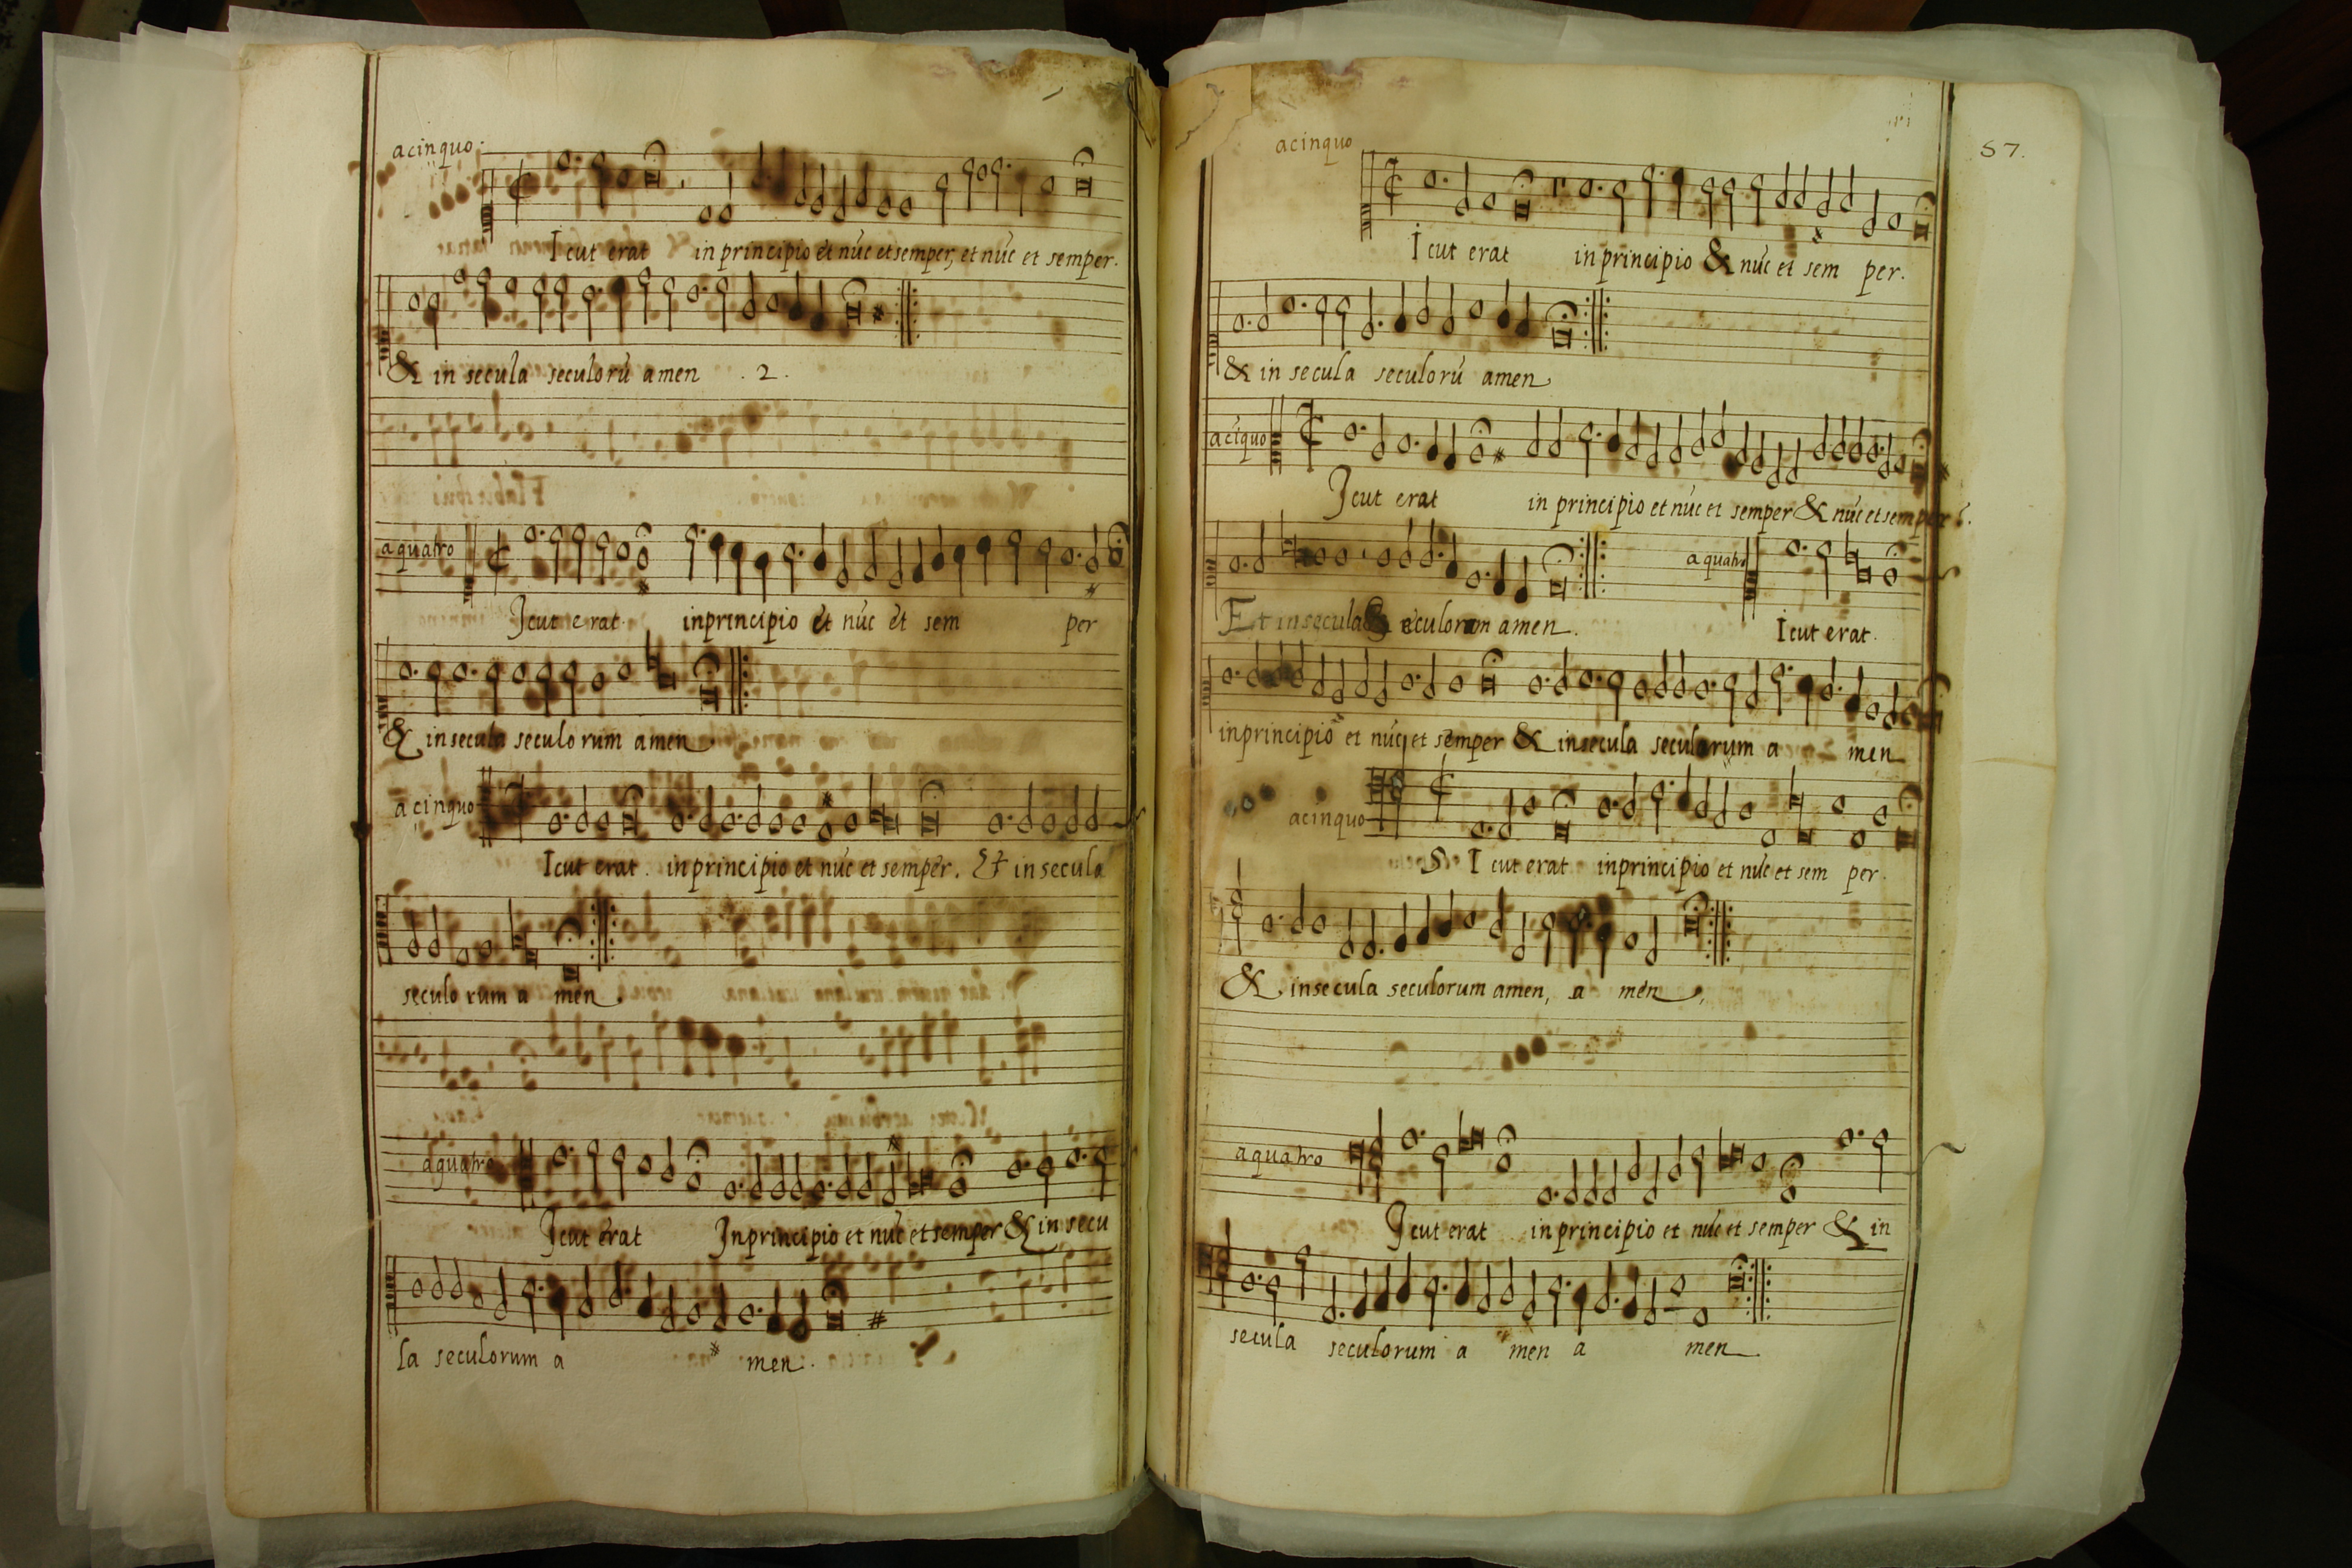 acinquo.
Icut erat in principio et núc et semper, et núc et semper.
& in secula seculorú amen .2.
aquatro
Icut erat. inprincipio et núc et sem per
& insecula seculorum amen
acinquo
Icut erat. inprincipio et núc et semper. Et in secula
seculorum a men.
aquatro
Icut erat Inprincipio et núc et semper & in secu
la seculorum a men.
57.
acinquo
Icut erat inprincipio & núc et sem per.
& in secula seculorú amen
acíquo
Icut erat in principio et núc et semper & núc et semper.
aquatro
Et insecula seculorum amen. Icut erat.
inprincipio et núc et semper & insecula seculorum a men
acinquo
S Icut erat inprincipio et núc et sem per.
& insecula seculorum amen, a men,
aquatro
Icut erat in principio et núc et semper & in
secula seculorum a men a men.